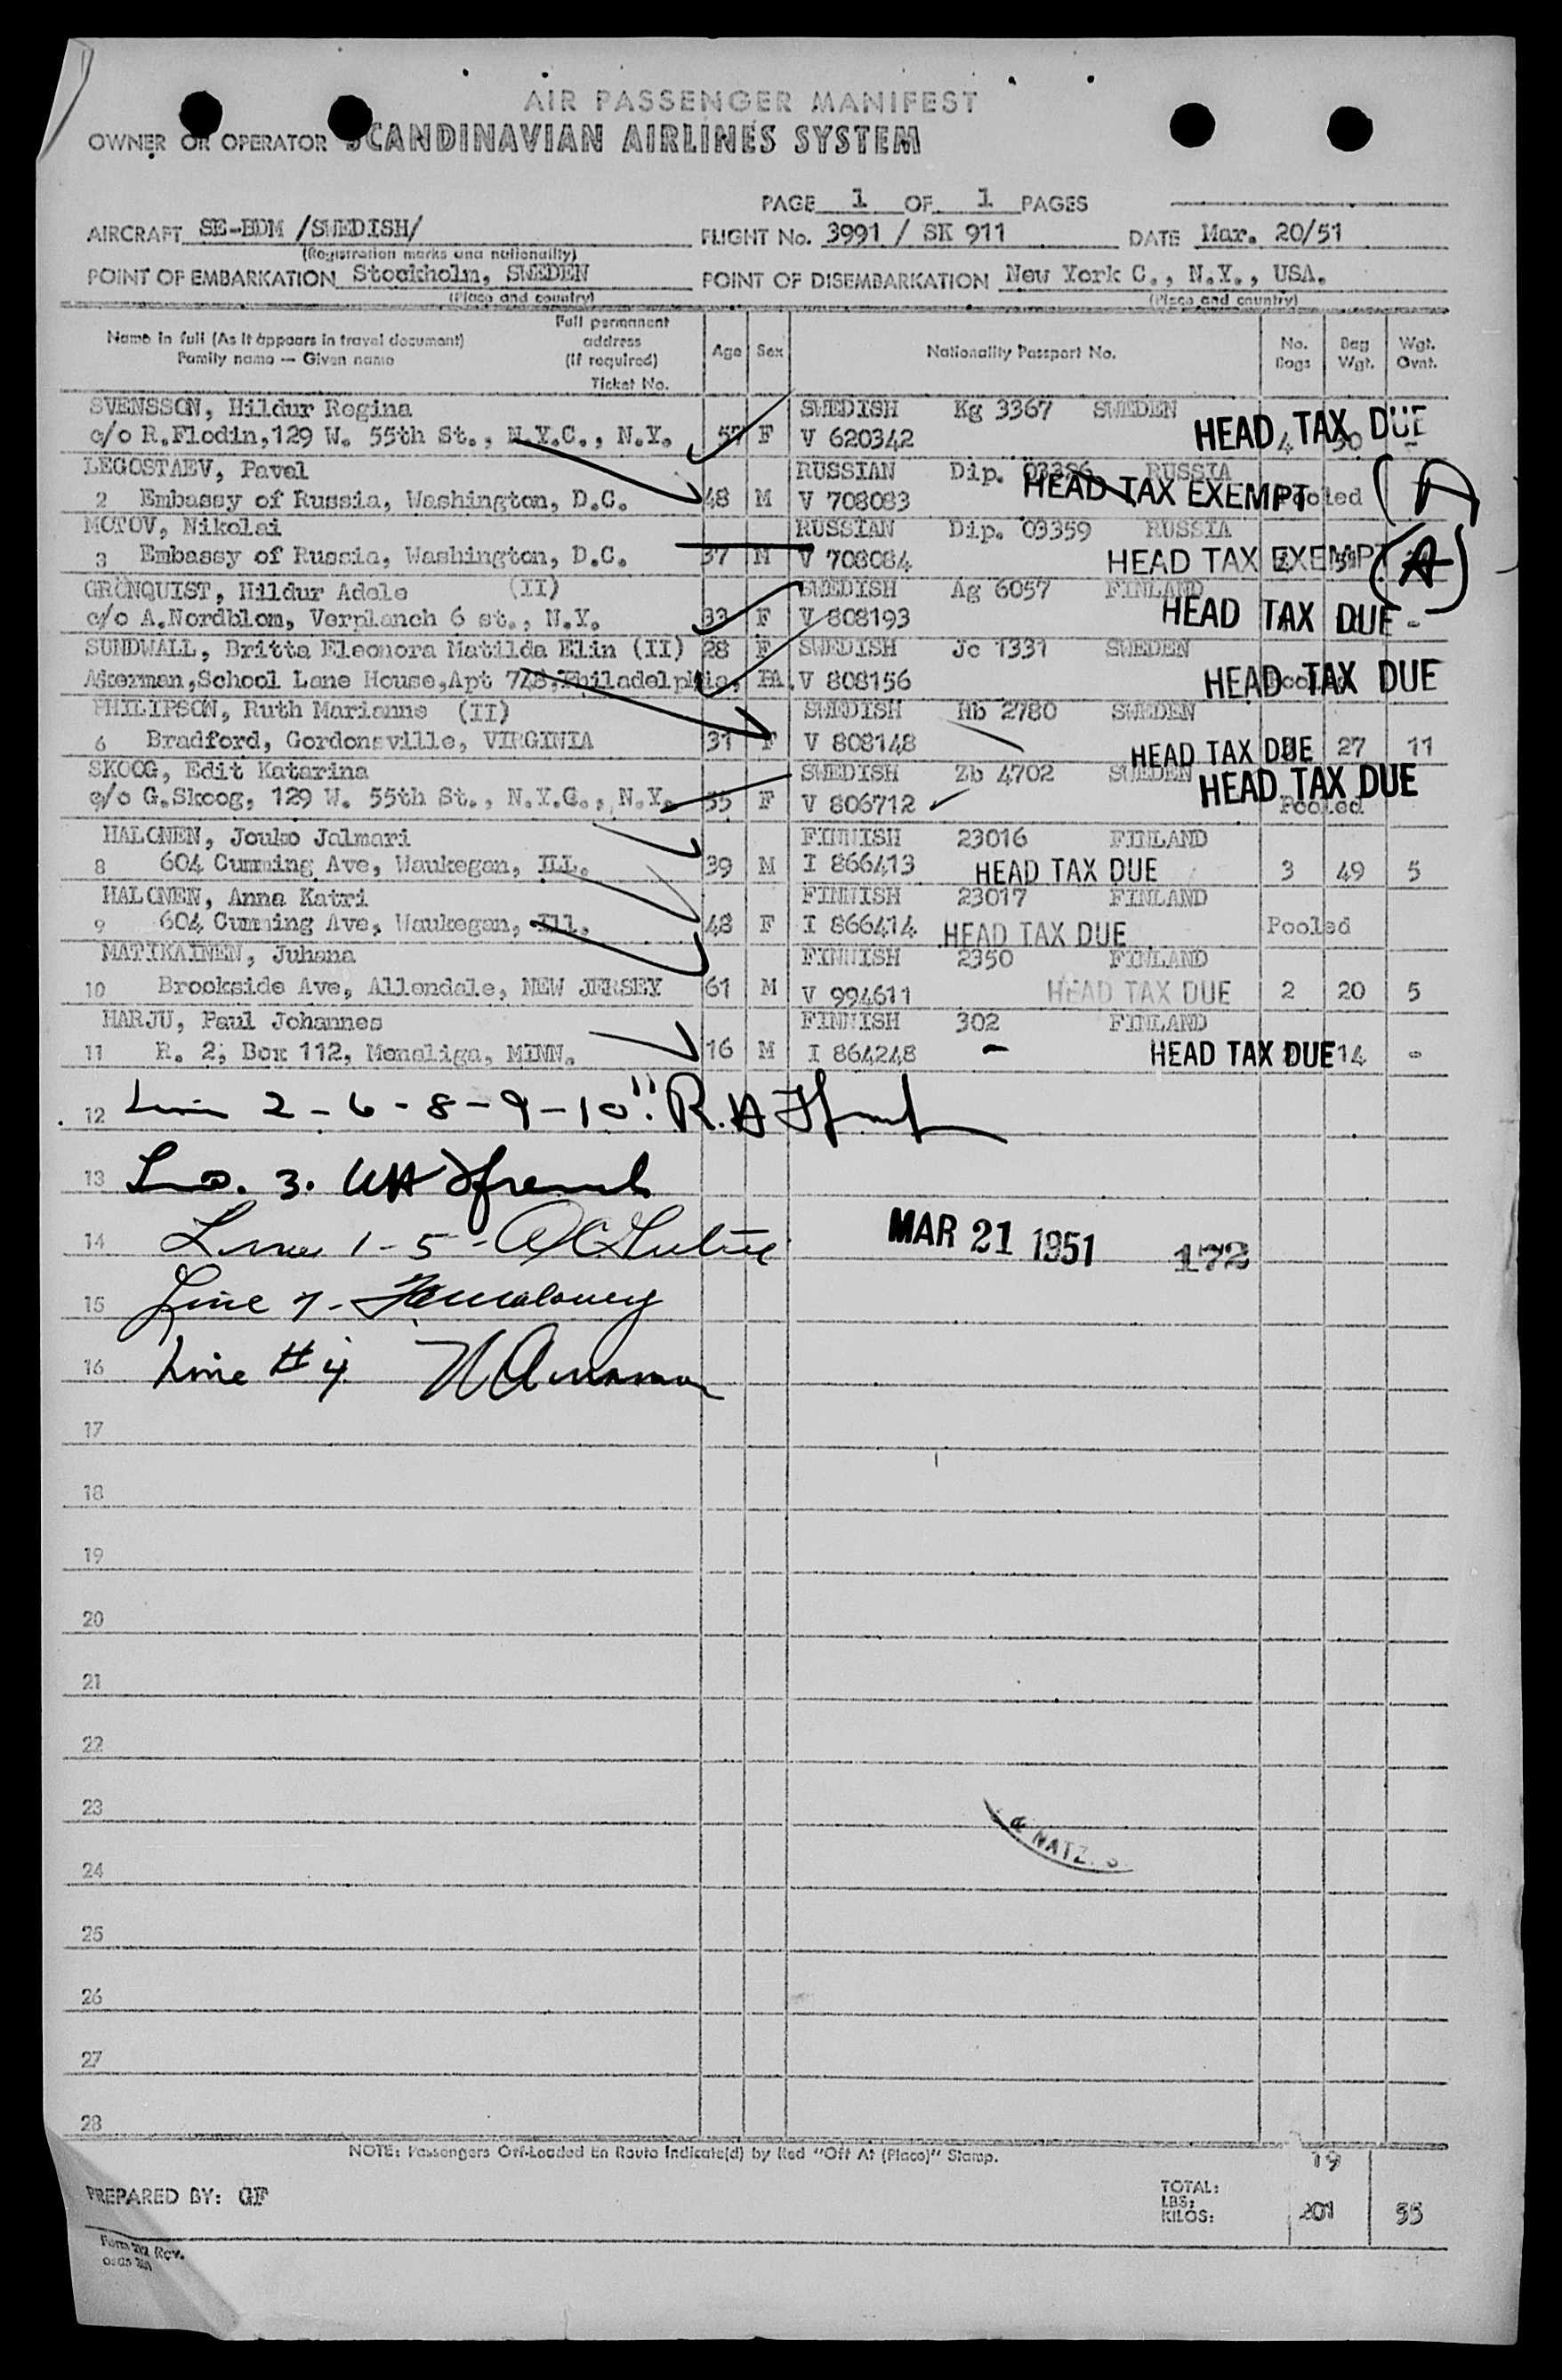 AIR PASSENGER MANIFEST
OWNER OR OPERATOR SCANDINAVIAN AIRLINES SYSTEM
PAGE 1 OF 1 PAGES
AIRCRAFT SE-BDM /SWEDISH/ FLIGHT No. 3991 / SK 911 DATE Mar. 20/51
(Registration marks and nationality)
POINT OF EMBARKATION Stockholm, SWEDEN POINT OF DISEMBARKATION New York C., N.Y., USA.
(Place and country) (Place and country)
Name in full (As it appears in travel document) Family name — Given name Full permanent address (If required) Ticket No. Age Sex Nationality Passport No. No. Bags Bag Wgt. Wgt. Ovnt.
SVENSSON, Hildur Regina SWEDISH Kg 3367 SWEDEN
c/o R.Flodin,129 W. 55th St., N.Y.C., N.Y. 57 F V 620342 HEAD TAX DUE 4 30 -
LEGOSTAEV, Pavel RUSSIAN Dip. 03386 RUSSIA
2 Embassy of Russia, Washington, D.C. 48 M V 708083 HEAD TAX EXEMPT Pooled (A)
MOTOV, Nikolai RUSSIAN Dip. 03359 RUSSIA
3 Embassy of Russia, Washington, D.C. 37 M V 708084 HEAD TAX EXEMPT (A)
GRÖNQUIST, Hildur Adele (II) SWEDISH Ag 6057 FINLAND
c/o A.Nordblom, Verplanch 6 st., N.Y. 33 F V 808193 HEAD TAX DUE -
SUNDWALL, Britta Eleonora Matilda Elin (II) 28 F SWEDISH Jc 1331 SWEDEN
Akerman,School Lane House,Apt Philadelphia, PA. V 808156 Pooled HEAD TAX DUE
PHILIPSON, Ruth Marianne (II) SWEDISH Hb 2780 SWEDEN
6 Bradford, Gordonsville, VIRGINIA 31 F V 808148 HEAD TAX DUE 27 11
SKOOG, Edit Katarina SWEDISH Zb 4702 SWEDEN
c/o G.Skoog, 129 W. 55th St., N.Y.C., N.Y. 35 F V 806712 HEAD TAX DUE Pooled
HALONEN, Jouko Jalmari FINNISH 23016 FINLAND
8 604 Cumming Ave, Waukegan, ILL. 39 M I 866413 HEAD TAX DUE 3 49 5
HALONEN, Anna Katri FINNISH 23017 FINLAND
9 604 Cumming Ave, Waukegan, Ill. 48 F I 866414 HEAD TAX DUE Pooled
MATIKAINEN, Juhana FINNISH 2350 FINLAND
10 Brookside Ave, Allendale, NEW JERSEY 61 M V 994611 HEAD TAX DUE 2 20 5
HARJU, Paul Johannes FINNISH 302 FINLAND
11 R. 2, Box 112, Menahga, MINN. 16 M I 864248 - HEAD TAX DUE 14 -
12 2-6-8-9-10
13 3.
14 Line 1-5- MAR 21 1951 172
15 Line 7-
16 Line #4
17
18
19
20
21
22
23
& NATZ. S.
24
25
26
27
28
NOTE: Passengers Off-Loaded En Route Indicate(d) by Red "Off At (Place)" Stamp.
19
PREPARED BY: GF TOTAL: LBS: KILOS: 201 35
Form Rev.